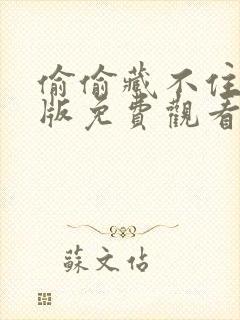 偷偷藏不住
版免費觀看
蘇文佔